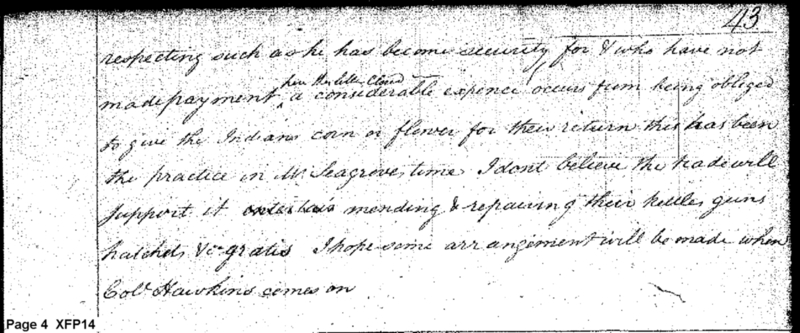 43
respecting such as he has become security for & who have not
here the letter closed
made payment, a considerable expence occurs from being obliged
to give the Indians corn or flower for their return this has been
the practice in Mr Seagroves time I dont believe the trade will
support it mending & repairing their kettles guns
hatchets &c gratis I hope some arrangement will be made when
Colo Hawkins comes on
Page 4 XFP14